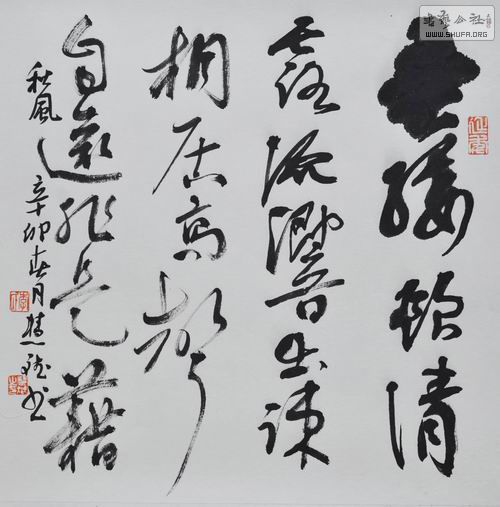 書藝公社
WWW.SHUFA.ORG
垂緌飲清
露流響出疎
桐居高聲
自遠非是藉
秋風 辛卯春月 书